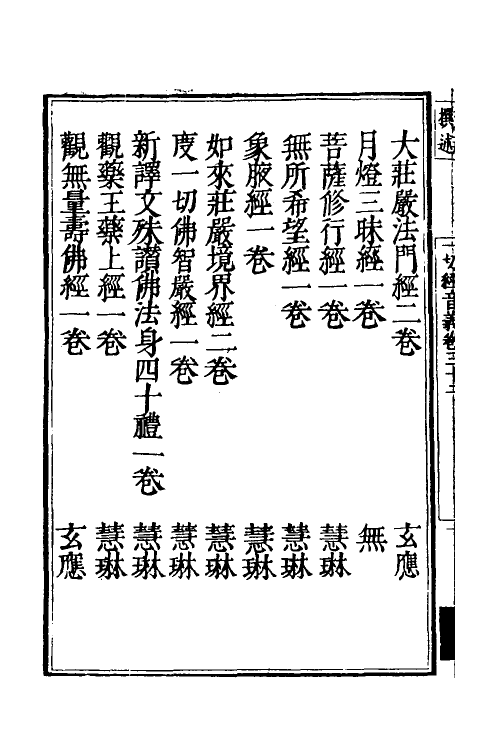 撰述
一切經音義卷三十二
大莊嚴法門經二卷 玄應
月燈三昧經一卷 無
菩薩修行經一卷 慧琳
無所希望經一卷 慧琳
象腋經一卷 慧琳
如來莊嚴境界經二卷 慧琳
度一切佛智嚴經一卷 慧琳
新譯文殊讚佛法身四十禮一卷 慧琳
觀藥王藥上經一卷 慧琳
觀無量壽佛經一卷 玄應